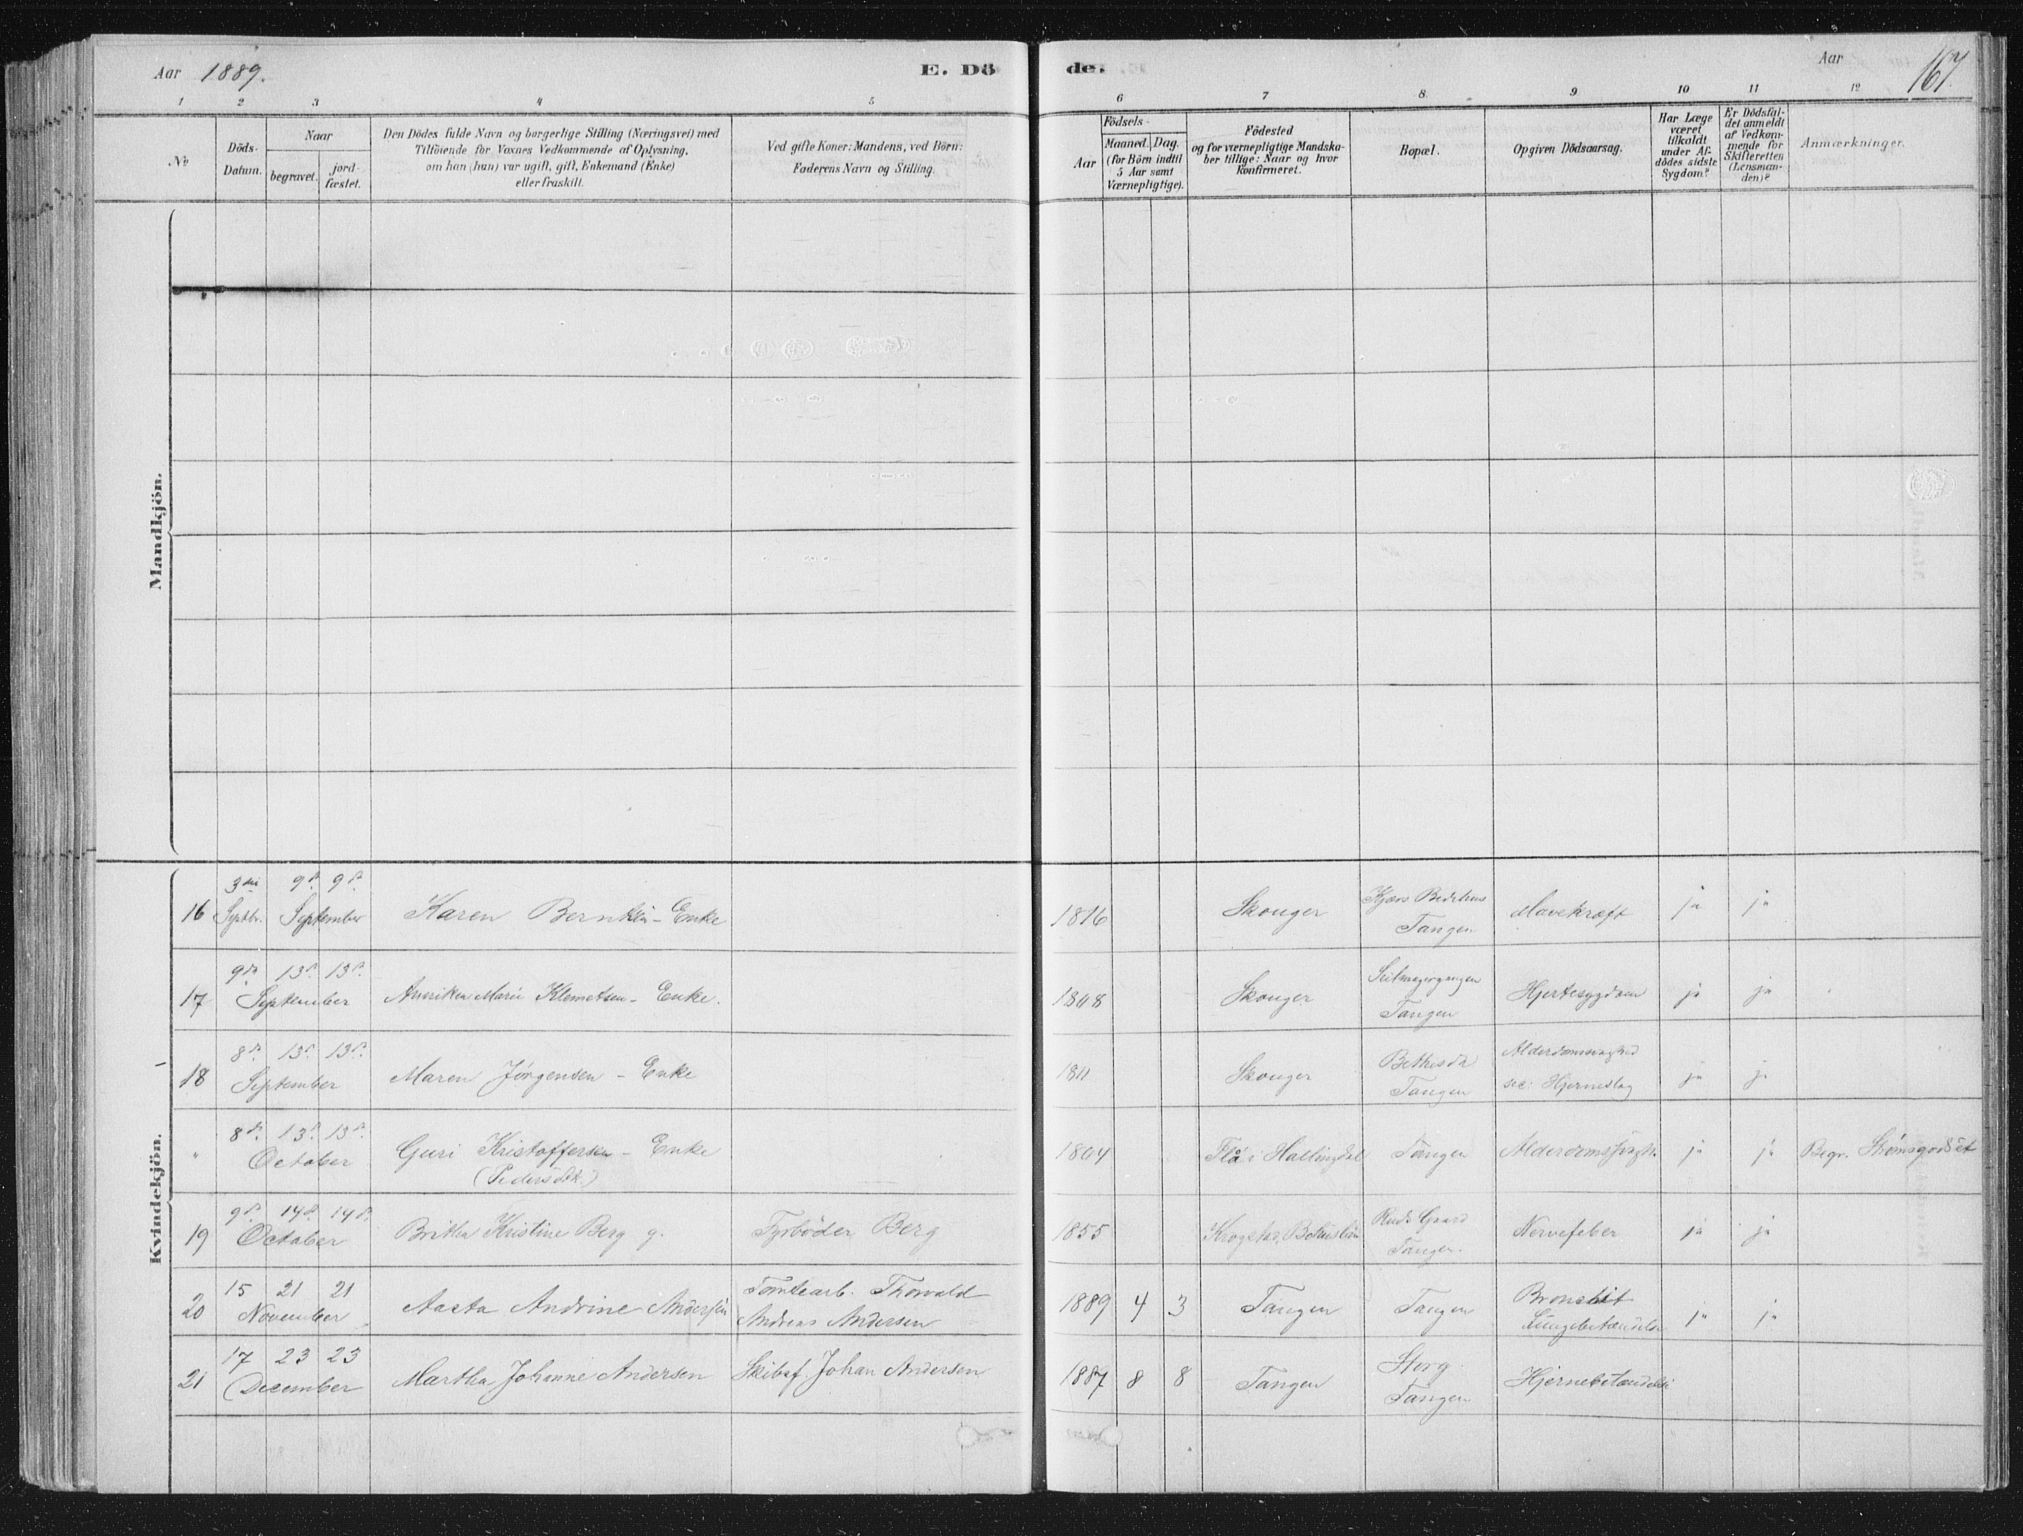 Aar 1889.
E. Dö
de.
Aar
167.
1 2 3 4 5 6 7 8. 9 10 11 12
No
Döds-Datum.
Naar
begravet.
jord-fæstet.
Den Dödes fulde Navn og borgerlige Stilling (Næringsvei) med
Tilföiende for Voxnes Vedkommende af Oplysning,
om han (hun) var ugift, gift, Enkemand (Enke)
eller fraskilt.
Ved gifte Koner: Mandens, ved Börn:
Faderens Navn og Stilling.
Födsels-
Aar
Maaned. Dag.
(for Börn indtil
5 Aar samt
Værnepligtige).
Födested
og for værnepligtige Mandska-
ber tillige: Naar og hvor
konfirmeret.
Bopæl.
Opgiven Dödsaarsag.
Har Læge
været
tilkaldt
under Af-
dödes sidste
Sygdom?
Er Dödsfal-
det anmeldt
af Vedkom-
mende for
Skifteretten
(Lensman-
den)?
Anmærkninger.
Mandkjön.
Kvindekjön.
3die 9de 9de
16 Septbr. September Karen Berntsen - Enke 1816 Skouger Tangen Mavekræft ja ja
9de 13de 13de
17 September Marie Klemetsen - Enke. Skouger Tangen Hjertesygdom ja ja
8de 13de 13de
18 September Maren Jørgensen - Enke 1811 Skouger Bethesda Tangen Alderdomssvaghed Hjerneslag ja ja
8de 13de 13de
" October Guri Kristoffersen - Enke 1804 Flå i Hallingdal Tangen ja ja Begr. Strømsgodset
(Pedersdtr.)
9de 14de 14de
19 October Kristine Berg g. Fyrbøder Berg 1855 Tangen. Nervefeber ja ja
15 21 21
20 November Aasta Andrine Andersen Tomtearb. Thorvald
Andreas Andersen 1889 4 3 Tangen Tangen Bronchit
Lungebetændelse ja ja
17 23 23
21 December Martha Johanne Andersen Johan Andersen 1887 8 8 Tangen Tangen Hjernebetændelse